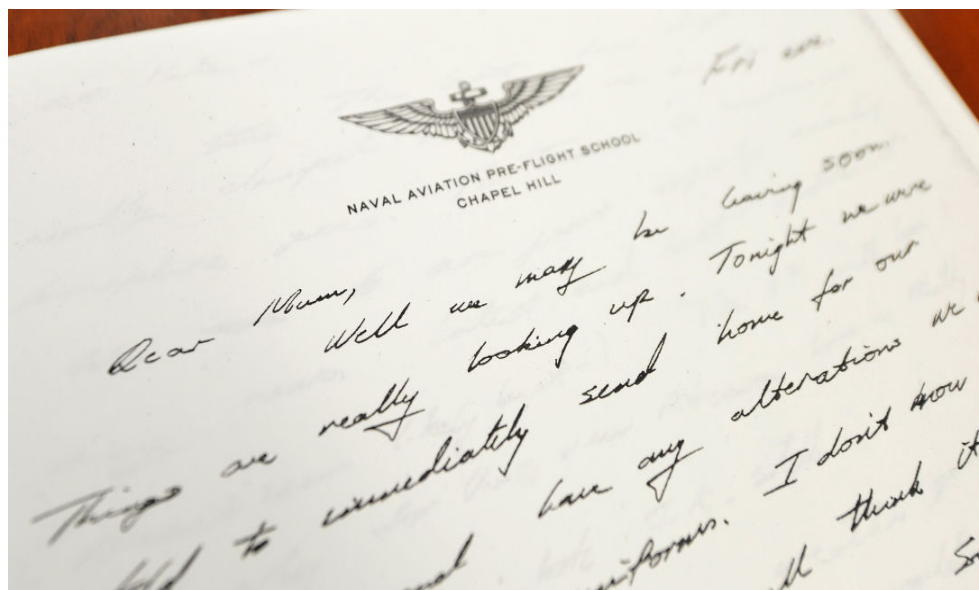 Fri eve.
NAVAL AVIATION PRE-FLIGHT SCHOOL
CHAPEL HILL
Dear Mum,
Well we may be leaving soon.
Things are really looking up. Tonight we were
told to immediately send home for our
have any alterations we
uniforms. I don't know
think it